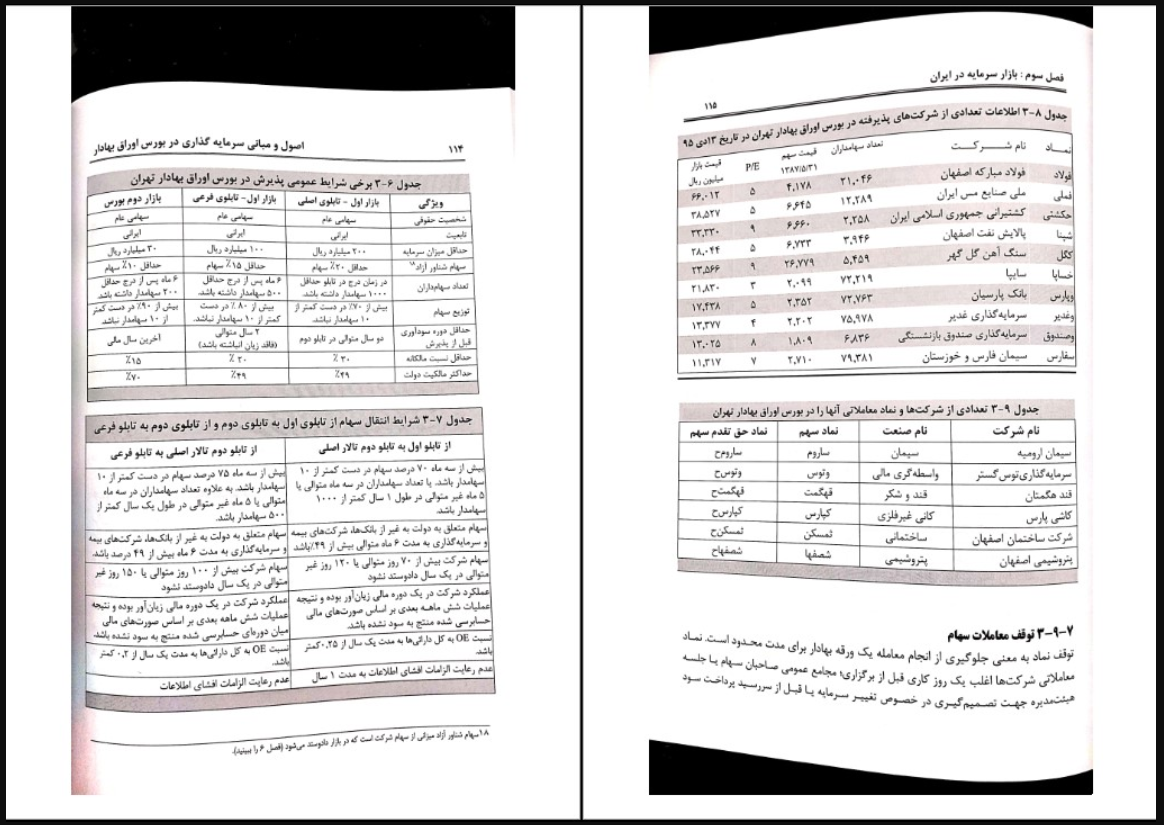 ۱۱۴
اصول و مبانی سرمایه گذاری در بورس اوراق بهادار
جدول ۶-۳ برخی شرایط عمومی پذیرش در بورس اوراق بهادار تهران
ویژگی بازار اول - تابلوی اصلی بازار اول- تابلوی فرعی بازار دوم بورس
شخصیت حقوقی سهامی عام سهامی عام سهامی عام
تابعیت ایرانی ایرانی ایرانی
حداقل میزان سرمایه ۲۰۰ میلیارد ریال ۱۰۰ میلیارد ریال ۳۰ میلیارد ریال
سهام شناور آزاد۱۸ حداقل ۲۰٪ سهام حداقل ۱۵٪ سهام حداقل ۱۰٪ سهام
تعداد سهام‌داران در زمان درج در تابلو حداقل ۶ ماه پس از درج حداقل ۶ ماه پس از درج حداقل
۱۰۰۰ سهامدار داشته باشد. ۵۰۰ سهامدار داشته باشد. ۲۰۰ سهامدار داشته باشد.
توزیع سهام بیش از ۷۰٪ در دست کمتر از بیش از ۸۰ ٪ در دست بیش از ۹۰٪ در دست کمتر
۱۰ سهامدار نباشد. کمتر از ۱۰ سهامدار نباشد. از ۱۰ سهامدار نباشد.
حداقل دوره سودآوری دو سال متوالی در تابلو دوم ۲ سال متوالی آخرین سال مالی
قبل از پذیرش (فاقد زیان انباشته باشد)
حداقل نسبت مالکانه ۳۰ ٪ ۲۰ ٪ ۱۵٪
حداکثر مالکیت دولت ۴۹٪ ۴۹٪ ۷۰٪
جدول ۷-۳ شرایط انتقال سهام از تابلوی اول به تابلوی دوم و از تابلوی دوم به تابلو فرعی
از تابلو اول به تابلو دوم تالار اصلی از تابلو دوم تالار اصلی به تابلو فرعی
بیش از سه ماه ۷۰ درصد سهام در دست کمتر از ۱۰
سهامدار باشد. یا تعداد سهامداران در سه ماه متوالی یا
۵ ماه غیر متوالی در طول ۱ سال کمتر از ۱۰۰۰
سهامدار باشد.
بیش از سه ماه ۷۵ درصد سهام در دست کمتر از ۱۰
سهامدار باشد. به علاوه تعداد سهامداران در سه ماه
متوالی یا ۵ ماه غیر متوالی در طول یک سال کمتر از
۵۰۰ سهامدار باشد.
سهام متعلق به دولت به غیر از بانک‌ها، شرکت‌های بیمه
و سرمایه‌گذاری به مدت ۶ ماه متوالی بیش از ۴۹٪باشد
سهام متعلق به دولت به غیر از بانک‌ها، شرکت‌های بیمه
و سرمایه‌گذاری به مدت ۶ ماه بیش از ۴۹ درصد باشد.
سهام شرکت بیش از ۷۰ روز متوالی یا ۱۲۰ روز غیر
متوالی در یک سال دادوستد نشود
سهام شرکت بیش از ۱۰۰ روز متوالی یا ۱۵۰ روز غیر
متوالی در یک سال دادوستد نشود
عملکرد شرکت در یک دوره مالی زیان‌آور بوده و نتیجه
عملیات شش ماهه بعدی بر اساس صورت‌های مالی
حسابرسی شده منتج به سود نشده باشد.
عملکرد شرکت در یک دوره مالی زیان‌آور بوده و نتیجه
عملیات شش ماهه بعدی بر اساس صورت‌های مالی
میان دوره‌ای حسابرسی شده منتج به سود نشده باشد.
نسبت OE به کل دارائی‌ها به مدت یک سال از ۰٫۲۵کمتر
باشد.
نسبت OE به کل دارائی‌ها به مدت یک سال از ۰٫۲ کمتر
باشد.
عدم رعایت الزامات افشای اطلاعات به مدت ۱ سال
عدم رعایت الزامات افشای اطلاعات
۱۸سهام شناور آزاد میزانی از سهام شرکت است که در بازار دادوستد می‌شود (فصل ۶ را ببینید).
فصل سوم : بازار سرمایه در ایران
۱۱۵
جدول ۸-۳ اطلاعات تعدادی از شرکت‌های پذیرفته در بورس اوراق بهادار تهران در تاریخ ۱۳دی ۹۵
نماد نام شرکت تعداد سهامداران قیمت سهم P/E قیمت بازار
۱۳۸۷/۵/۳۱ میلیون ریال
فولاد فولاد مبارکه اصفهان ۲۱,۰۴۶ ۴,۱۷۸ ۵ ۶۶,۰۱۲
فملی ملی صنایع مس ایران ۱۲,۲۸۹ ۶,۶۴۵ ۵ ۳۸,۵۲۷
حکشتی کشتیرانی جمهوری اسلامی ایران ۲,۲۵۸ ۶,۶۶۰ ۹ ۳۳,۳۳۰
شپنا پالایش نفت اصفهان ۳,۹۴۶ ۶,۷۳۳ ۵ ۲۸,۰۴۴
کگل سنگ آهن گل گهر ۵,۴۵۹ ۲۶,۷۷۹ ۹ ۲۳,۵۶۶
خساپا سایپا ۷۲,۲۱۹ ۲,۰۹۹ ۳ ۲۱,۸۳۰
وپارس بانک پارسیان ۷۲,۷۶۳ ۲,۳۵۲ ۵ ۱۷,۴۳۸
وغدیر سرمایه‌گذاری غدیر ۷۵,۹۷۸ ۲,۲۰۲ ۴ ۱۳,۳۷۷
وصندوق سرمایه‌گذاری صندوق بازنشستگی ۶,۸۳۶ ۱,۸۰۹ ۸ ۱۳,۰۲۵
سفارس سیمان فارس و خوزستان ۷۹,۳۸۱ ۲,۷۱۰ ۷ ۱۱,۳۱۷
جدول ۹-۳ تعدادی از شرکت‌ها و نماد معاملاتی آنها را در بورس اوراق بهادار تهران
نام شرکت نام صنعت نماد سهم نماد حق تقدم سهم
سیمان ارومیه سیمان ساروم ساروم‌ح
سرمایه‌گذاری‌توس‌گستر واسطه‌گری مالی وتوس وتوس‌ح
قند هگمتان قند و شکر قهگمت قهگمت‌ح
کاشی پارس کانی غیرفلزی کپارس کپارس‌ح
شرکت ساختمان اصفهان ساختمانی ثمسکن ثمسکن‌ح
پتروشیمی اصفهان پتروشیمی شصفها شصفهاح
۷-۹-۳ توقف معاملات سهام
توقف نماد به معنی جلوگیری از انجام معامله یک ورقه بهادار برای مدت محدود است. نماد
معاملاتی شرکت‌ها اغلب یک روز کاری قبل از برگزاری؛ مجامع عمومی صاحبان سهام یا جلسه
هیئت‌مدیره جهت تصمیم‌گیری در خصوص تغییر سرمایه یا قبل از سررسید پرداخت سود